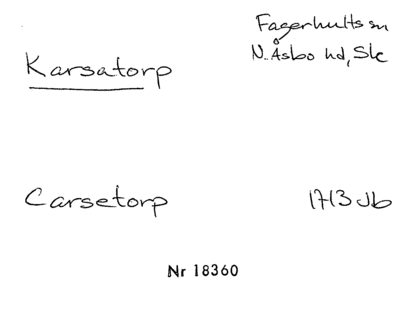 Fagerhults sn
Karsatorp
N. Åsbo hd, Sk
Carsetorp
1713 Jb
Nr 18360